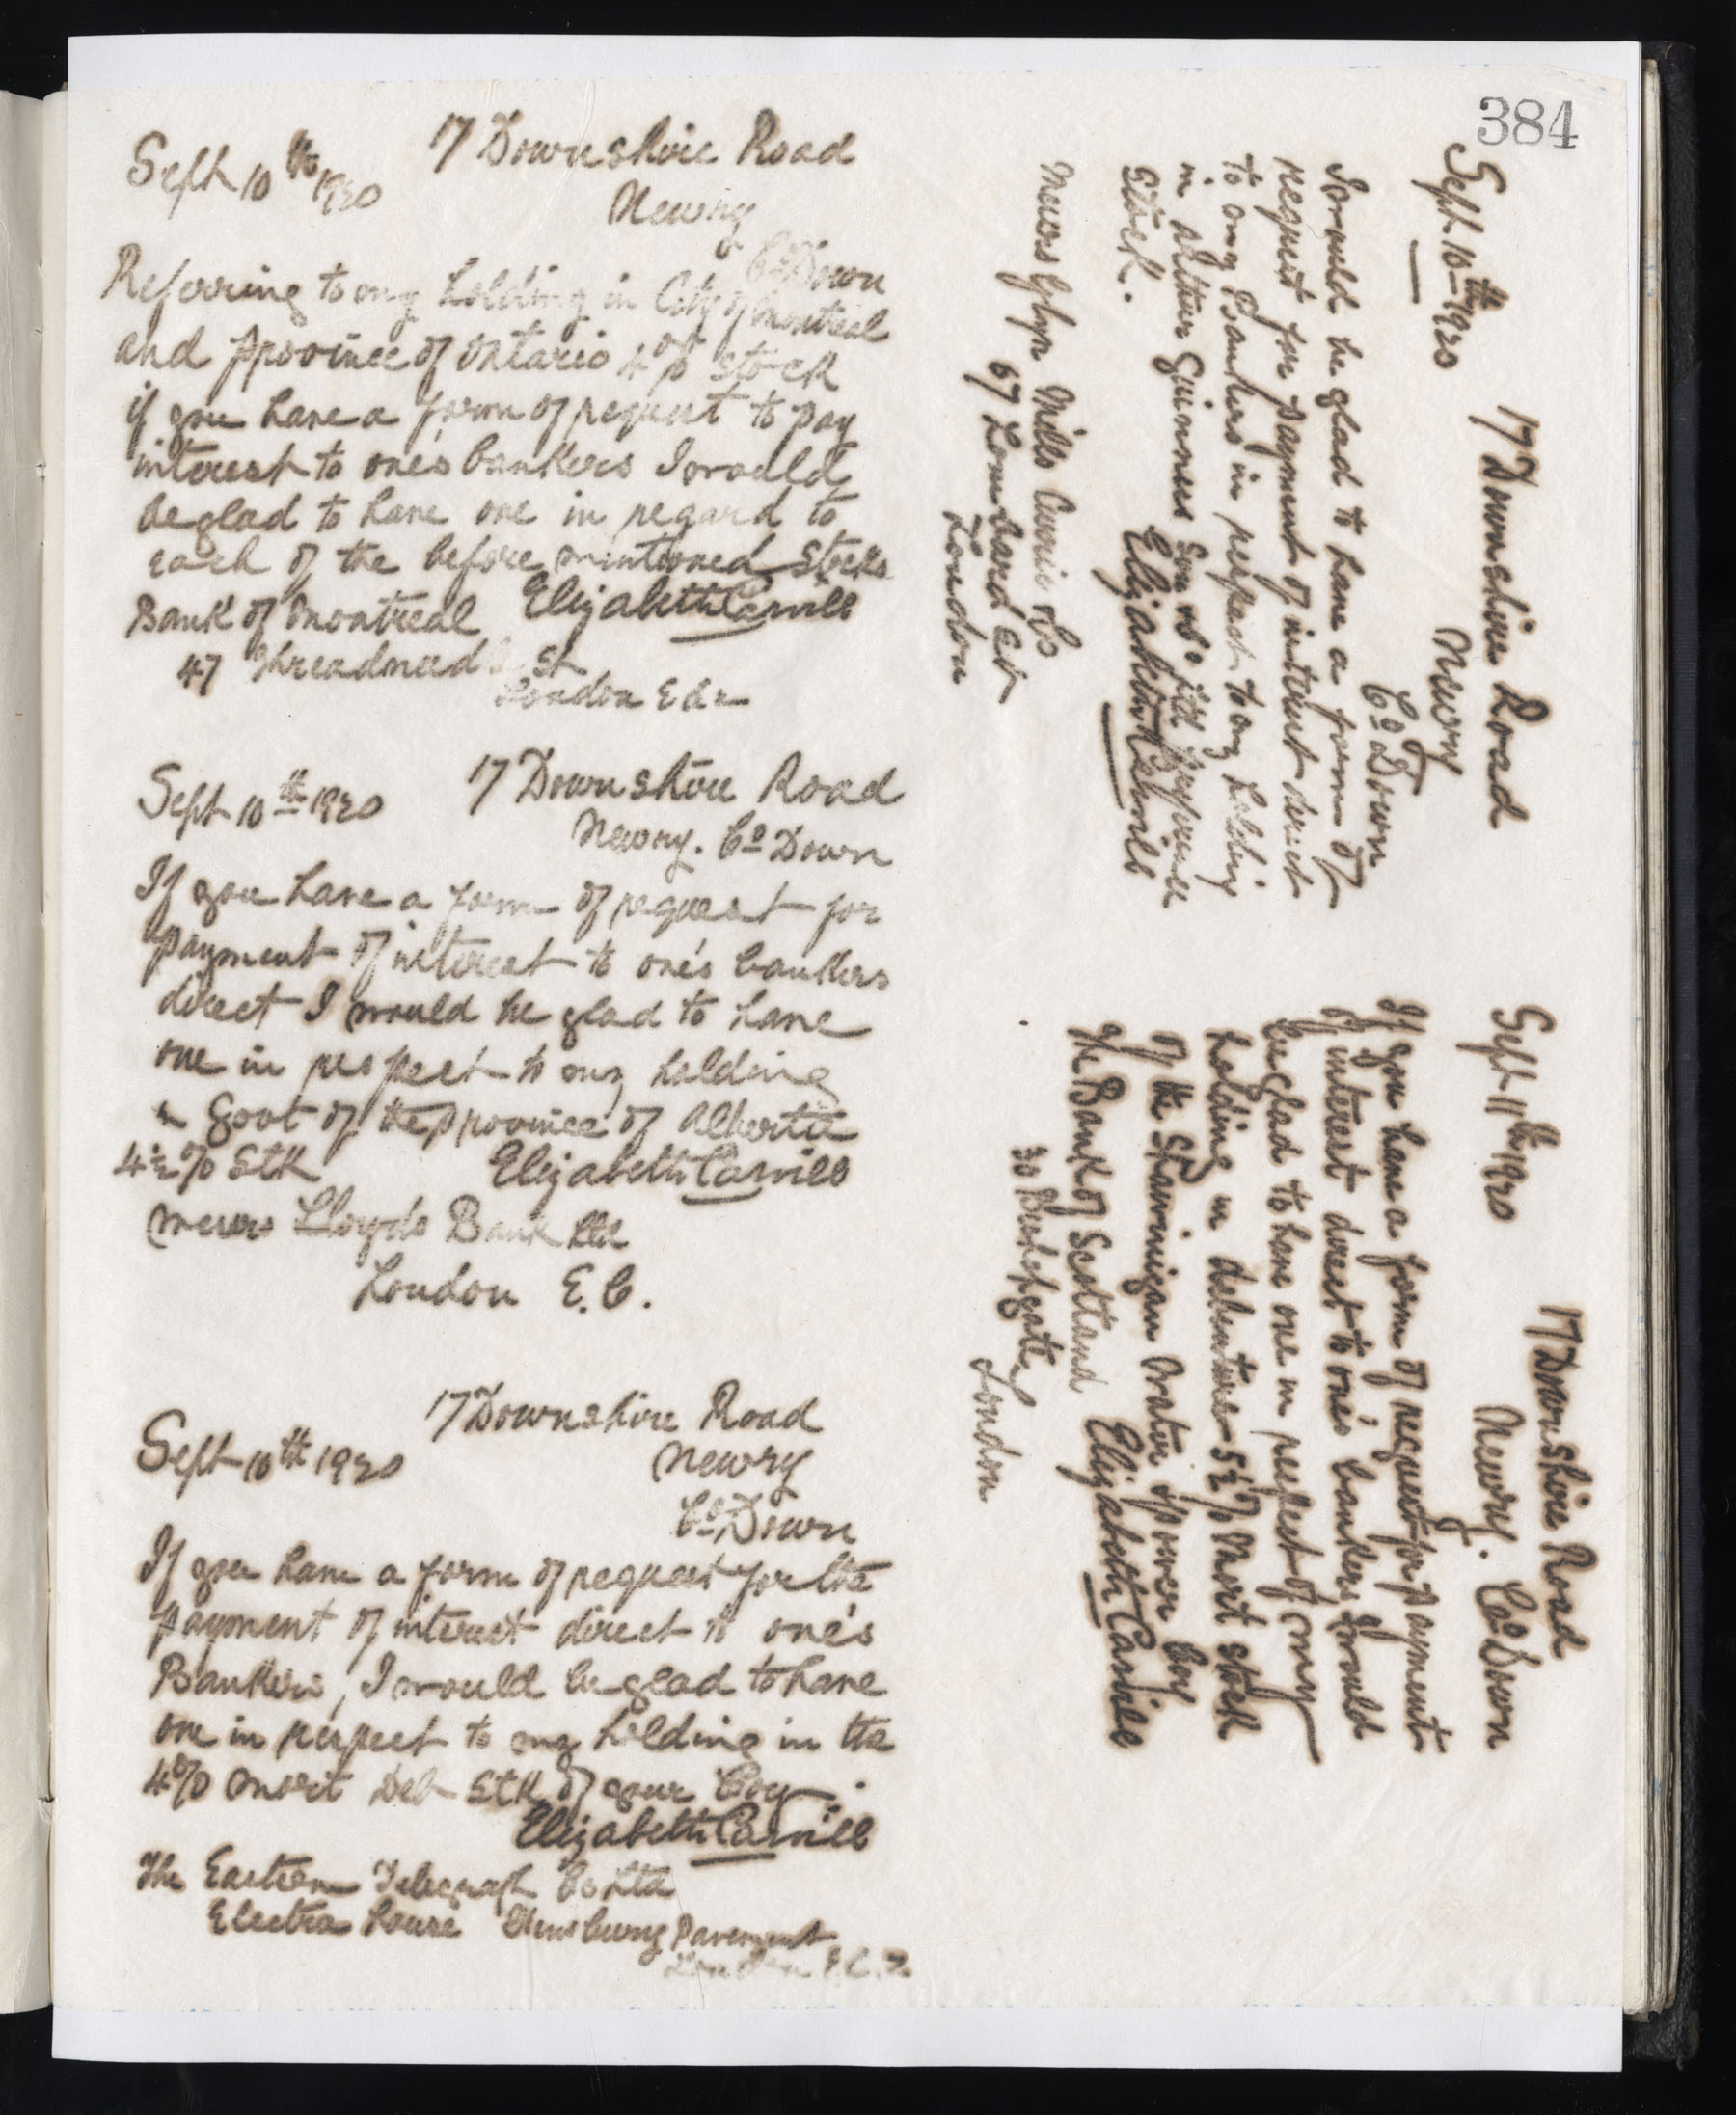 384
17 Downshire Road
Sept 10th 1920
Newry
Co Down
Referring to my holding in City of Montreal
and Province of Ontario 4% Stock
if you have a form of request to pay
interest to one's bankers I would
be glad to have one in regard to
each of the before mentioned stocks
Elizabeth Carvill
Bank of Montreal
47 Threadneedle St
London
17 Downshire Road
Sept 10th 1920
Newry. Co Down
If you have a form of request for
payment of interest to one's bankers
direct I would be glad to have
one in respect to my holding
in Govt of the Province of Alberta
4½% Stk
Elizabeth Carvill
Messrs Lloyds Bank Ltd
London E.C.
17 Downshire Road
Sept 10th 1920
Newry
Co Down
If you have a form of request for the
payment of interest direct to one's
Bankers, I would be glad to have
one in respect to my holding in the
4% Mort Deb Stk of your Coy.
Elizabeth Carvill
The Eastern Telegraph Co Ltd
Electra House Finsbury Pavement
London E.C.2.
Sept 10th 1920
17 Downshire Road
Newry
Co Down
I would be glad to have a form of
request for payment of interest direct
to my Bankers in respect to my holding
in Arthur Guinness Son & Co Preference
Stock.
Elizabeth Carvill
Messrs Glyn Mills Currie & Co
67 Lombard St
London
Sept 11th 1920
17 Downshire Road
Newry. Co Down
If you have a form of request for payment
of interest direct to one's bankers I would
be glad to have one in respect of my
holding in debentures 5½% Mort Stock
of the Shawinigan Water & Power Coy
Elizabeth Carvill
The Bank of Scotland
30 Bishopsgate
London